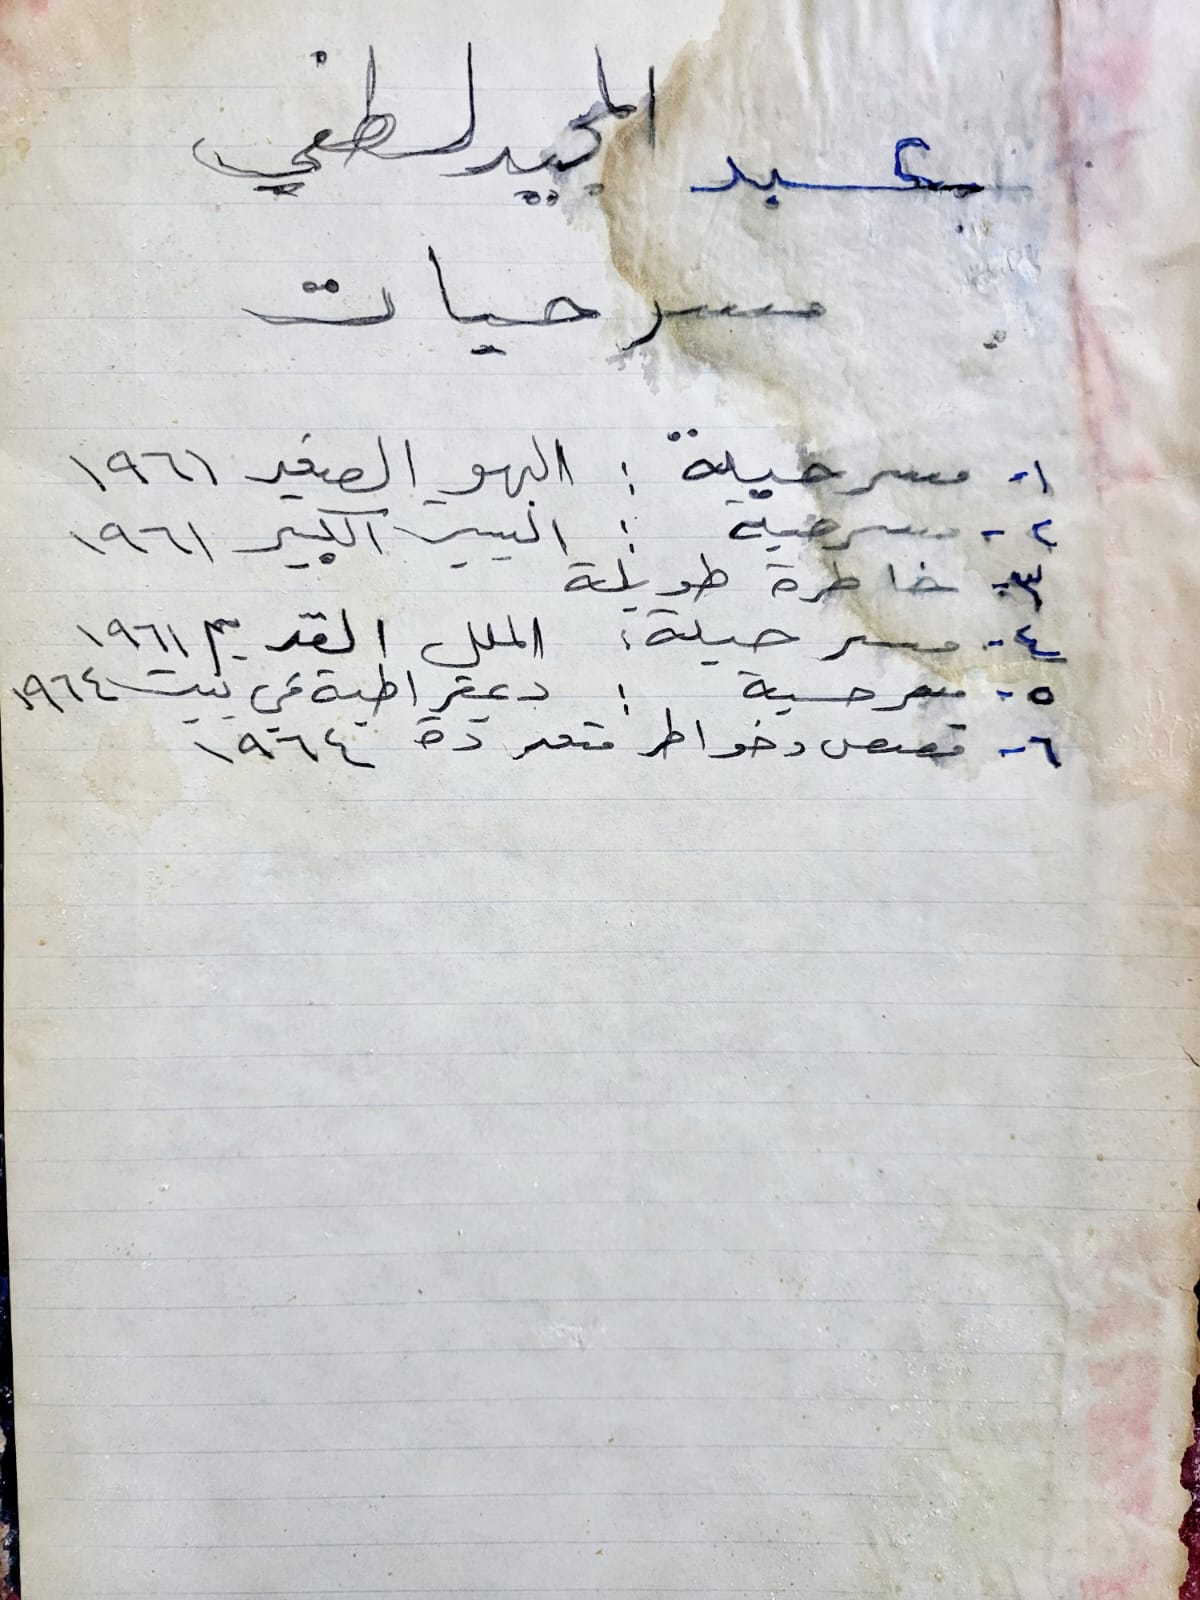 عبد المجيد لطفي
مسرحيات
١- مسرحية : البهو الصغير ١٩٦١
٢- مسرحية : البيت الكبير ١٩٦١
٣- خاطرة طويلة
٤- مسرحية : الملل القديم ١٩٦١
٥- مسرحية : دعقراطية في بيت ١٩٦٤
٦- قصص وخواطر متعددة ١٩٦٤